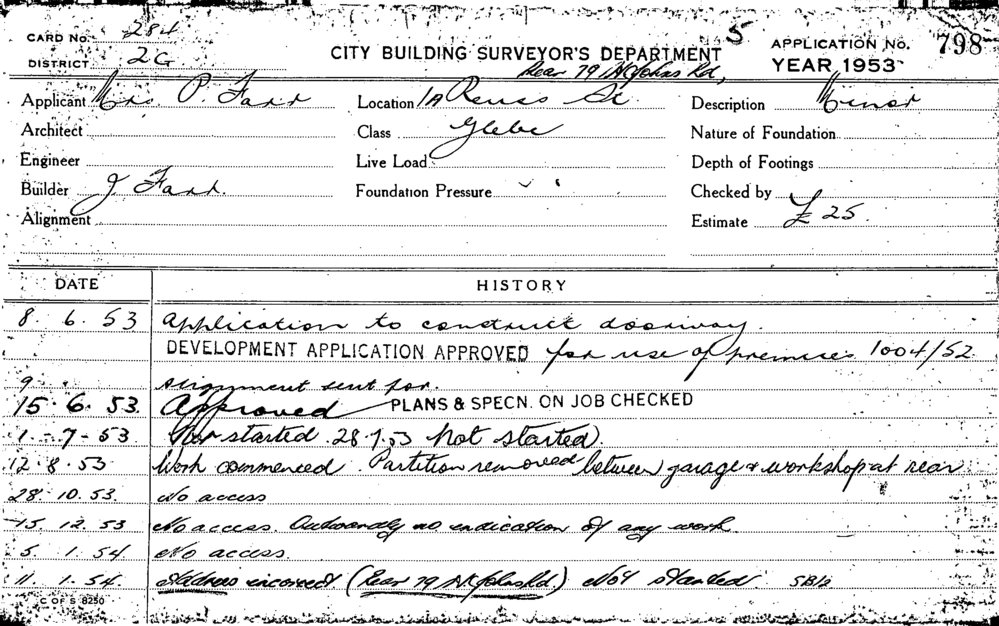 CARD No. 284
DISTRICT 2G
CITY BUILDING SURVEYOR'S DEPARTMENT 5
APPLICATION No. 798
YEAR 1953
Rear 79 St Johns Rd,
Applicant Mrs P. Farr
Location 1A Reuss St
Description Minor
Architect
Class Glebe
Nature of Foundation
Engineer
Live Load
Depth of Footings
Builder J Farr.
Foundation Pressure
Checked by
Alignment
Estimate £25.
DATE HISTORY
8. 6. 53 Application to construct doorway.
DEVELOPMENT APPLICATION APPROVED for use of premises 1004/52
9 Alignment sent for.
15. 6. 53. Approved PLANS & SPECN. ON JOB CHECKED
1 - 7 - 53 Not started. 28.7.53 Not started.
12. 8. 53. Work commenced. Partition removed between garage & workshop at rear
28. 10. 53. No access
15. 12. 53 No access. Outwardly no indication of any work
5. 1. 54 No access.
11. 1. 54. Address incorrect (Rear 79 St Johns Rd.) Not started
C OF S 8250